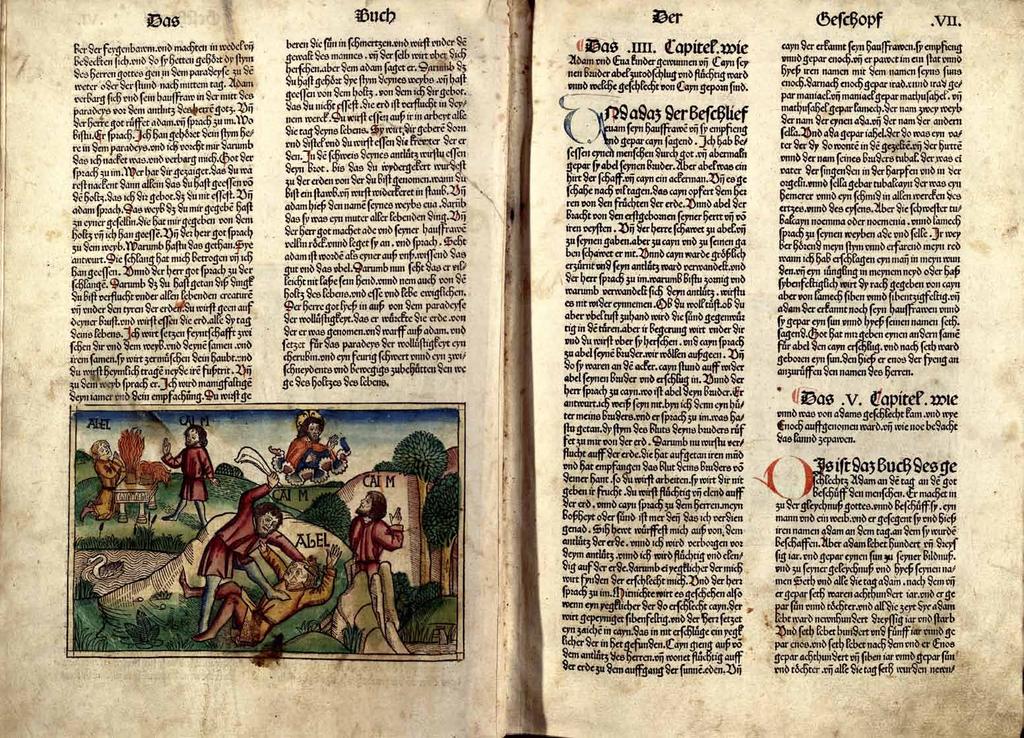 Das Buch
ber der feygenbawm.vnd machten in wedel vñ
bedeckten sich.vnd do sy hetten gehört dy stym
des herren gottes gen in dem paradeyse zu dē
weter oder der stund nach mittem tag. Adam
verbarg sich vnd sein haussfraw in der mitt des
paradeys vor dem antlitz des herrē gotz. Vñ
der herre got rüffet adam.vñ sprach zu im.Wo
bistu.Er sprach.Ich han gehöret dein stym he/
re in dem paradeys.vnd ich vorcht mir darumb
das ich nacket was.vnd verbarg mich.Got der
sprach zu im.Wer hat dir gezaiget.das du wa
rest nackent dann allein das du hast geessen vō
dē holtz.das ich dir gebot.dz du nit essest. Vñ
adam sprach.Das weyb dz du mir gegebē hast
zu eyner gesellin.die hat mir gegeben von dem
holtz vñ ich han geessē. Vñ der herr got sprach
zu dem weyb.Warumb hastu das gethan.Sye
antwurt.Die schlang hat mich betrogen vñ ich
han geessen. Vnnd der herr got sprach zu der
schlangē. Darumb dz du hast getan diß ding
du bist verflucht vnder allen lebenden creaturē
vñ vnder den tyren der erden.du wirst geen auff
deyner brust.vnd wirst essen die erd.alle dy tag
deins lebens. Ich wirt setzen feyntschafft zwi
schen dir vnd dem weyb.vnd deynē samen.vnd
irem samen.sy wirt zermüschen dein haubt.vnd
du wirst heymlich tragē neyde irē fußtrit. Vñ
zu dem weyb sprach er. Ich wird manigfaltigē
deyn iamer vnd dein empfachung.Du wirst ge
beren die sün in schmertzen.vnd wirst vnder dē
gewalt des mannes. vñ der selb wirt ober dich
herschen.aber dem adam saget er. Darumb dz
du hast gehört dye stym deynes weybs.vñ hast
geessen von dem holtz. von dem ich dir gebot.
das du nicht essest.die erd ist verflucht in dey/
nem werck.Du wirst essen auß ir in arbeyt alle
die tag deyns lebens. Sy wirt dir geberē dorn
vnd distel.vnd du wirst essen die krewter der er
den.In dē schweis deynes antlütz wirstu essen
deyn brot. bis das du wydergekert wurdest
zu der erden von der du bist genomen.wann du
bist ein staub.vñ wirst widerkeret in staub. Vñ
adam hieß den namē seynes weybs eua.darūb
das sy was eyn muter aller lebenden ding. Vñ
der herr got machet adē vnd seyner haußfrawē
vellin röck.vnnd leget sy an. vnd sprach. Seht
adam ist wordē als eyner auß vns.wissend das
gut vnd das vbel.Darumb nun seht das er vil/
leicht nit laße sein hend.vnnd nem auch von dē
holtz des lebens.vnd esse vnd lebe ewigklichen.
Der herre got ließ in auß von dem paradeyse
der wollüstigkeyt.das er würckte die erde.von
der er was genomen.vnd warff auß adam.vnd
setzet für das paradeys der wollüstigkeyt eyn
cherubin.vnd eyn feurig schwert vnnd eyn zwi/
schneydents vnd bewegigs zubehütten den we
ge des holtzes des lebens.
ABEL
CAIM
CAIM
CAIM
ABEL
Der Geschopf .VII.
Das .IIII. Capitel.wie
Adam vnd Eua kinder gewunnen vñ Cayn sey
nen bruder abel zutodschlug vnd flüchtig ward
vnnd welche geschlecht von Cayn geporn sind.
Vnd adaz der beschlief
euam seyn haussfrawē vñ sy empfieng
vnd gepar cayn sagend. Ich hab be/
sessen eynen menschen durch got.vñ abermaln
gepar sy abel seynen bruder.Aber abel was ein
hirt der schaff.vñ cayn ein ackerman. Vñ es ge
schahe nach vil tagen.das cayn opfert dem her
ren von den früchten der erde. Vnnd abel der
bracht von den erstgebornen seyner hertt vñ vō
iren veysten. Vñ der herre schawet zu abel.vñ
zu seynen gaben.aber zu cayn vnd zu seinen ga
ben schawet er nit. Vnnd cayn warde größlich
erzürnt vnd seyn antlütz ward verwandelt.vnd
der herr sprach zu im.warumb bistu zornig vnd
warumb verwandelt sich deyn antlütz. wirstu
es nit wider eynnemen. Ob du woll tüst.ob du
aber vbel tust zuhand wird die sünd gegenwür
tig in dē türen.aber ir begerung wirt vnder dir
vnd du wirst ober sy herschen. vnd cayn sprach
zu abel seynē bruder.wir wöllen außgeen. Vñ
do sy waren an dē acker.cayn stund auff wider
abel seynen bruder vnd erschlug in. Vnnd der
herr sprach zu cayn.wo ist abel deyn bruder.Er
antwurt.ich weiß seyn nit.byn ich denn eyn hü/
ter meins bruders.vnd er sprach zu im.was ha/
stu getan.dy stym des bluts deyns bruders rüf
fet zu mir von der erd. Darumb nu wirstu ver/
flucht auff der erde.die hat auffgetan iren mūd
vnd hat empfangen das blut deins bruders vō
deiner hant.so du wirst arbeiten.sy wirt dir nit
geben ir frucht. du wirst flüchtig vñ elend auff
der erd. vnnd cayn sprach zu dem herren.meyn
boßheyt oder sünd ist mer deñ das ich verdien
genad. Sih hewet würffest mich auß von dem
antlütz der erde. vnnd ich wird verborgen vor
deym antlütz.vnnd ich wird flüchtig vnd elen/
dig auff der erde.darumb ei yeglicher der mich
wirt fynden der erschlecht mich. Vnd der herr
sprach zu im.Mit nichte wirt es geschehen also
wenn eyn yegklicher der do erschlecht cayn.der
wirt gepeyniget sibenfeltig.vnd der herr setzet
eyn zaichē in cayn.Das in nit erschlüge ein yegk
licher der in het gefunden.Cayn gieng auß vō
dem antlütz des herren.vñ wonet flüchtig auff
der erde zu dem auffgang der sunnē.eden. Vñ
cayn der erkannt seyn haussfrawen.sy empfieng
vnnd gepar enoch.vñ er pawet ein stat vnnd
hyeß iren namen mit dem namen seyns suns
enoch.darnach enoch gepar irad.vnnd irad ge/
par maniael.vñ maniael gepar mathusahel. vñ
mathusahel gepar lamech.der nam zwey weyb
der nam der eynen ada.vñ der nam der andern
sella.Vnd ada gepar iahel.der do was eyn va/
ter der dy do wonten in dē gezelten.vñ der hirten
vnnd der nam seines bruders tubal.der was ei
vater der singenden in der harpfen vnd in der
orgeln.vnnd sella gebar tubalcayn der was eyn
hemerer vnnd eyn schmid in allen wercken des
ertzes.vnnd des eysens.Aber die schwester tu/
balcayn noemma oder noemenia. vnnd lamech
sprach zu seynen weyben ade vnd selle. Ir wey
ber hörend meyn stym vnnd erfarend meyn red
wann ich hab erschlagen eyn man in meyn wun
den.vñ eyn jüngling in meynem neyd oder haß
sybenfeltigklich wirt dy rach gegeben von cayn
aber von lamech siben vnnd sibentzigfeltig.vñ
adam der erkannt noch seyn haussfrawen vnnd
sy gepar eyn sun vnnd hyeß seiner namen seth.
sagend.Got hat mir geben eynen andern samē
für abel den cayn erschlug.vnd nach seth ward
geboren eyn sun.den hieß er enos der fyeng an
anzurüffen den namen des herren.
Das .V. Capitel. wie
vnnd was von adams geschlecht kam.vnd wye
Enoch auffgenomen ward.vñ wie noe bedacht
das sunnd zepawen.
Dis ist daz Buch des ge
schlechtz Adam an dē tag an dē got
beschüff den menschen. Er machet in
zu der gleychnuß gottes.vnnd beschüff sy. eyn
mann vnd ein weib.vnd er gesegent sy vnd hieß
iren namen adam an dem tag.an dem sy wurdē
beschaffen.Aber adam lebet hundert vñ dreys/
sig iar.vnd gepar eynen sun zu seyner bildnuß.
vnd zu seyner geleychnuß vnd hyeß seynen na/
men Seth vnd alle die tag adam.nach dem vñ
er gepar seth waren achthundert iar.vnd er ge
par sün vnnd töchter.vnd all die zeyt dye adam
lebt ward newnhundert dreyssig iar vnd starb
Vnd seth lebet hundert vnd fünff iar vnnd ge
par enos.vnd seth lebet nach dem vnd er Enos
gepar achthundert vñ siben iar vnnd gepar sün
vnd töchter.vñ alle die tag seth wurden newn/